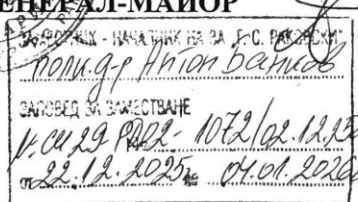 ГЕНЕРАЛ-МАЙОР
НАЧАЛНИК НА ВА „Г.С. РАКОВСКИ“
полк. д-р Антон Банков
ЗАПОВЕД ЗА ЗАМЕСТВАНЕ
1072/02.12.25
от 22.12.2025 до 04.01.2026